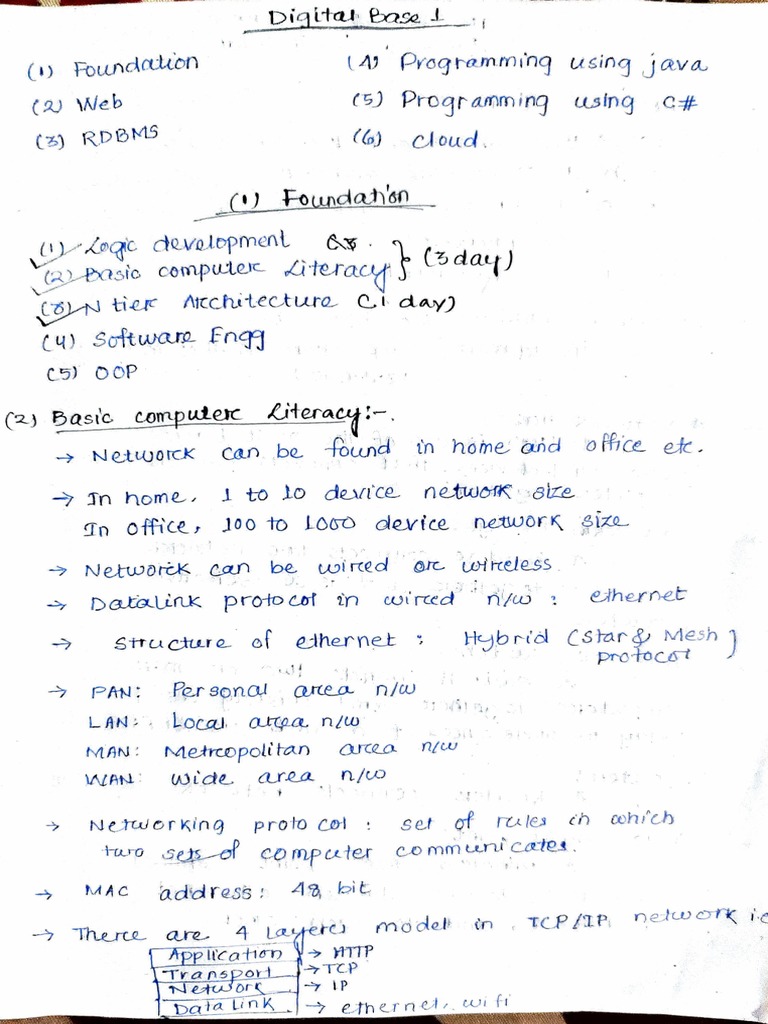 Digital Base 1
(1) Foundation
(2) Web
(3) RDBMS
(4) Programming using java
(5) Programming using C#
(6) cloud.
(1) Foundation
(1) Logic development
(2) Basic computer Literacy } (3 day)
(3) N tier Architecture (1 day)
(4) Software Engg
(5) OOP
(2) Basic computer Literacy:-.
→ Network can be found in home and office etc.
→ In home, 1 to 10 device network size
In office, 100 to 1000 device network size
→ Network can be wired or wireless
→ Datalink protocol in wired n/w : ethernet
→ Structure of ethernet : Hybrid (Star & Mesh
protocol)
→ PAN: Personal area n/w
LAN: Local area n/w
MAN: Metropolitan area n/w
WAN: wide area n/w
→ Networking protocol : set of rules in which
two sets of computer communicates.
→ MAC address: 48 bit
→ There are 4 Layers model in TCP/IP network i.e
Application → HTTP
Transport → TCP
Network → IP
Data Link → ethernet, wifi